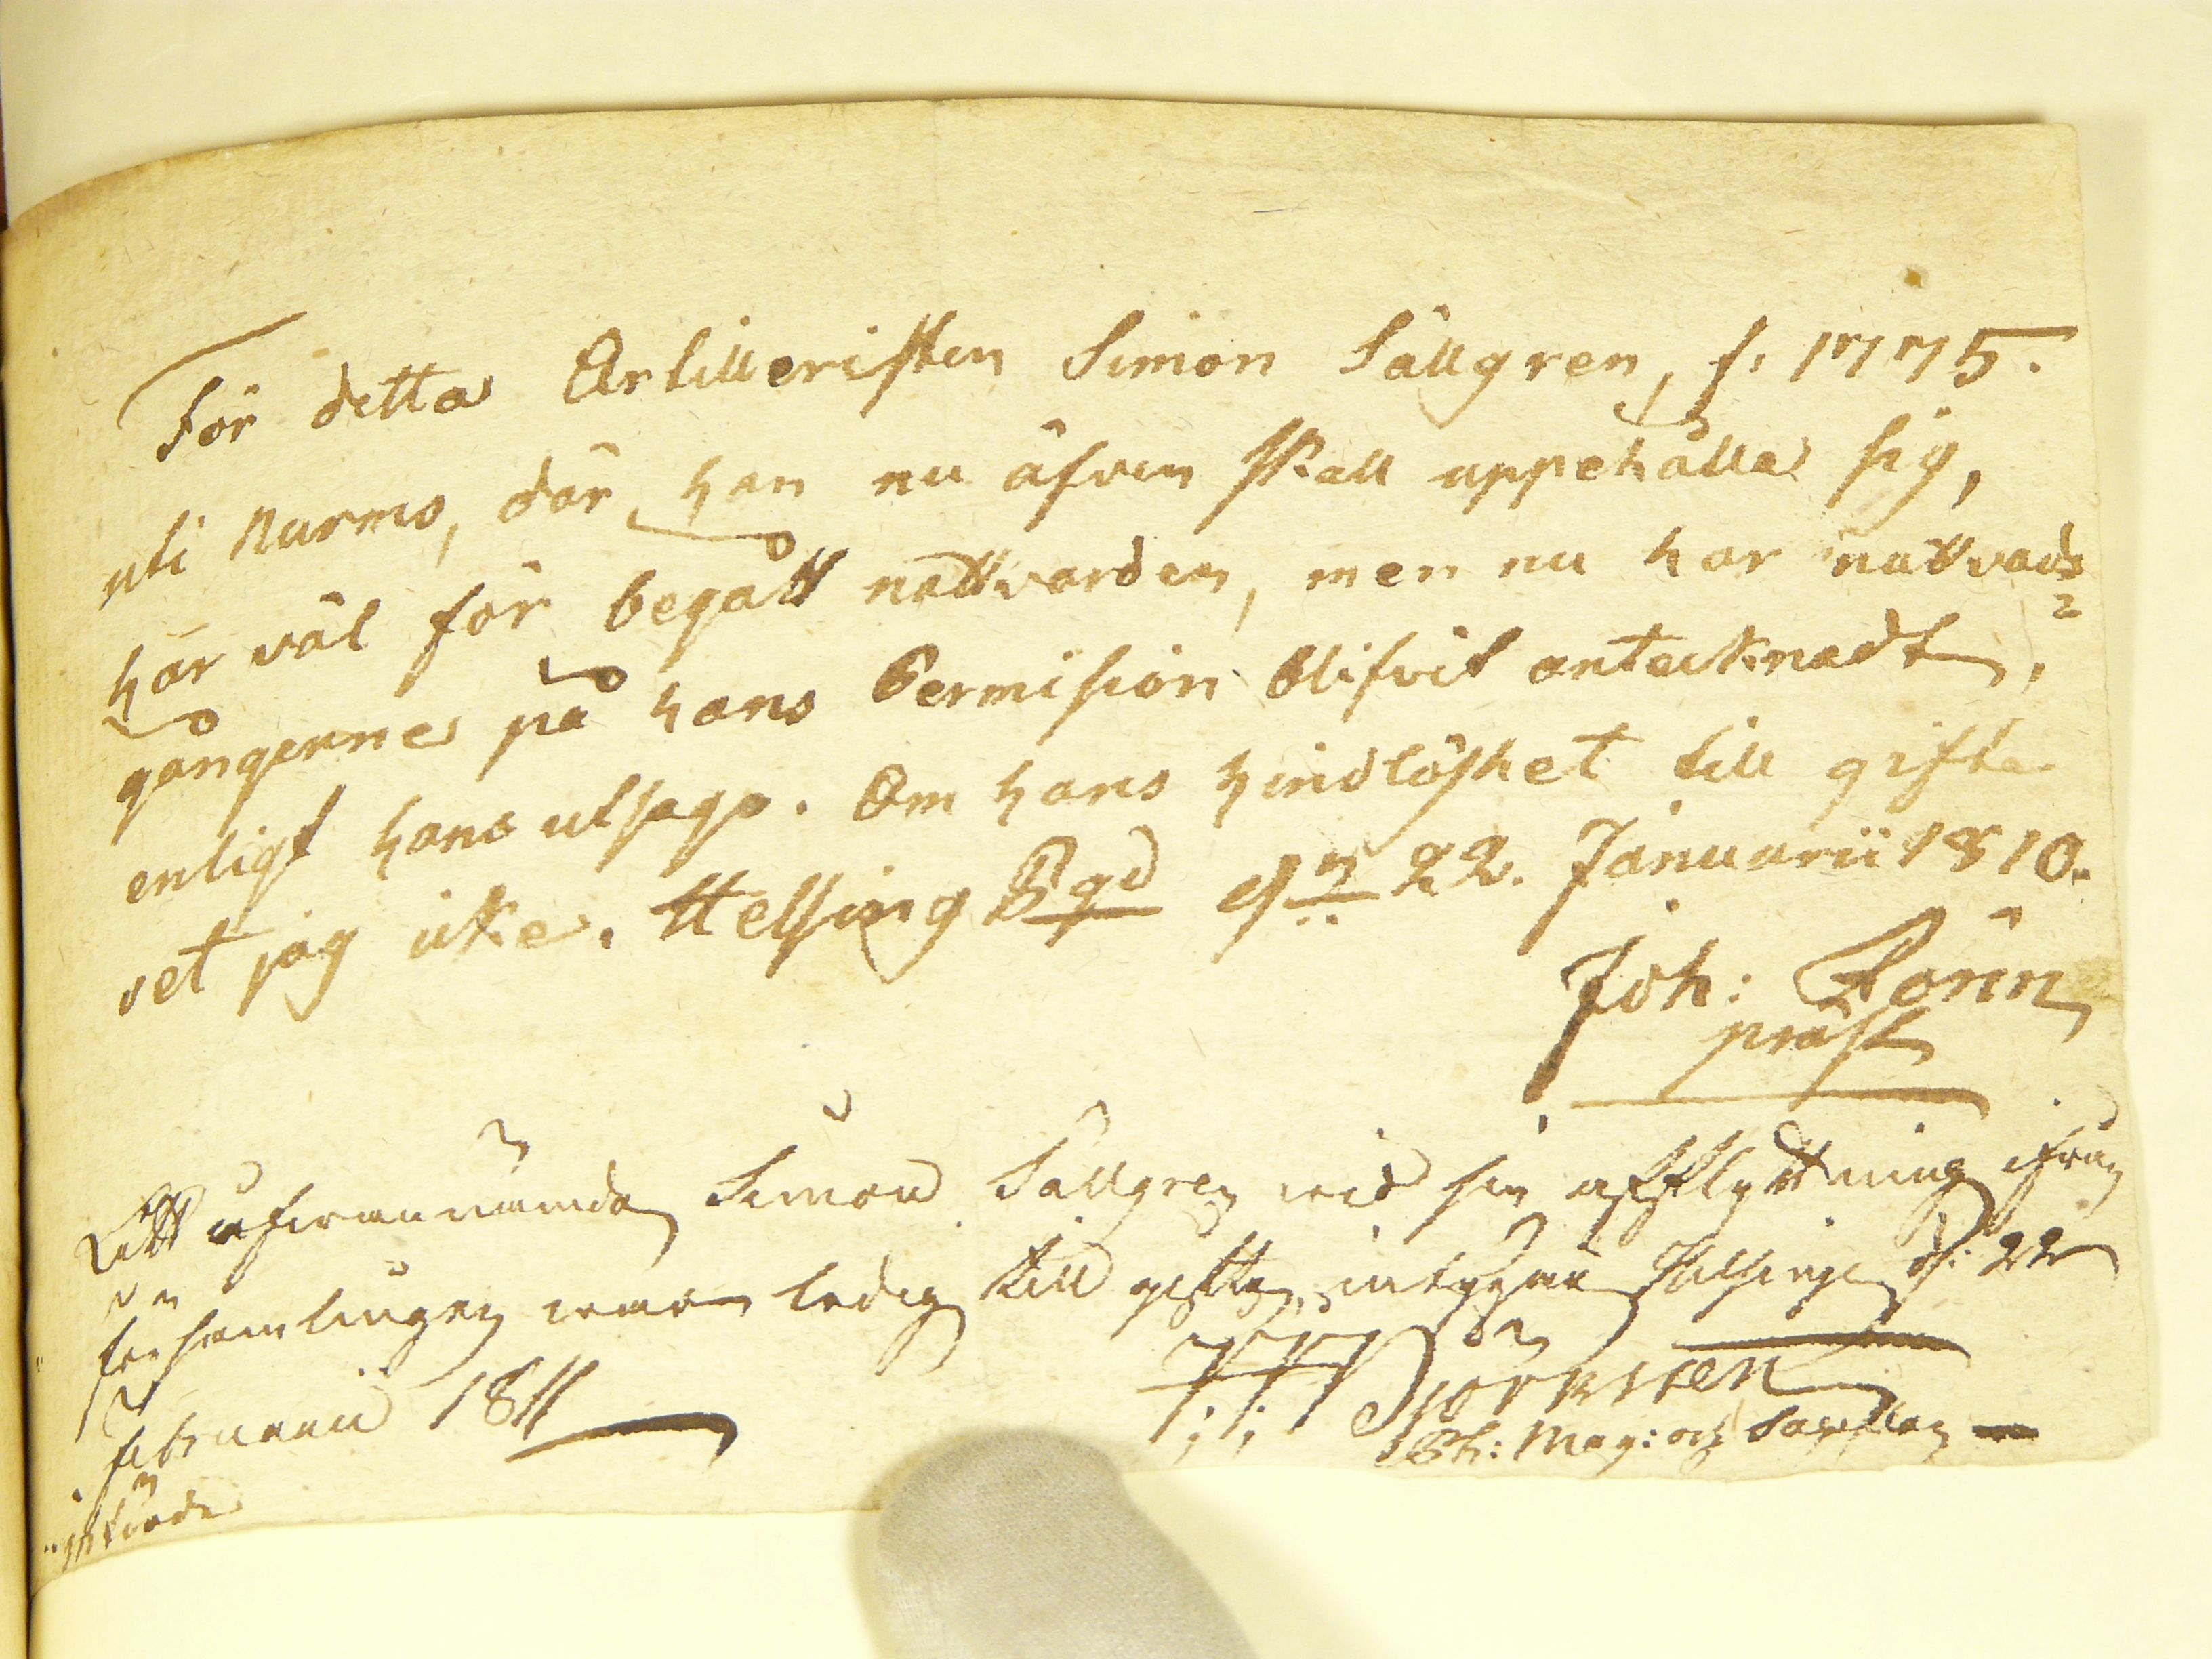 För detta Artilleristen Simon Sållgren, f. 1775.
uti Nurmo, där han nu äfven skall uppehålla sig,
har väl för begått nattvarden, men nu har nattvards
gångerne på hans Permision blifvit antecknadt,
enligt hans utsago. Om hans hindlöshet till gifte
vet jag icke. Helsing Pgd d. 22. Januarii 1810.
Joh:
präst
Att ofwannämda Simon Sållgren wid sin afflyttning ifrån
församlingen war ledig till gifte, intygar Helsinge d: 22
februarii 1811
Björksten
Ph: Mag: och